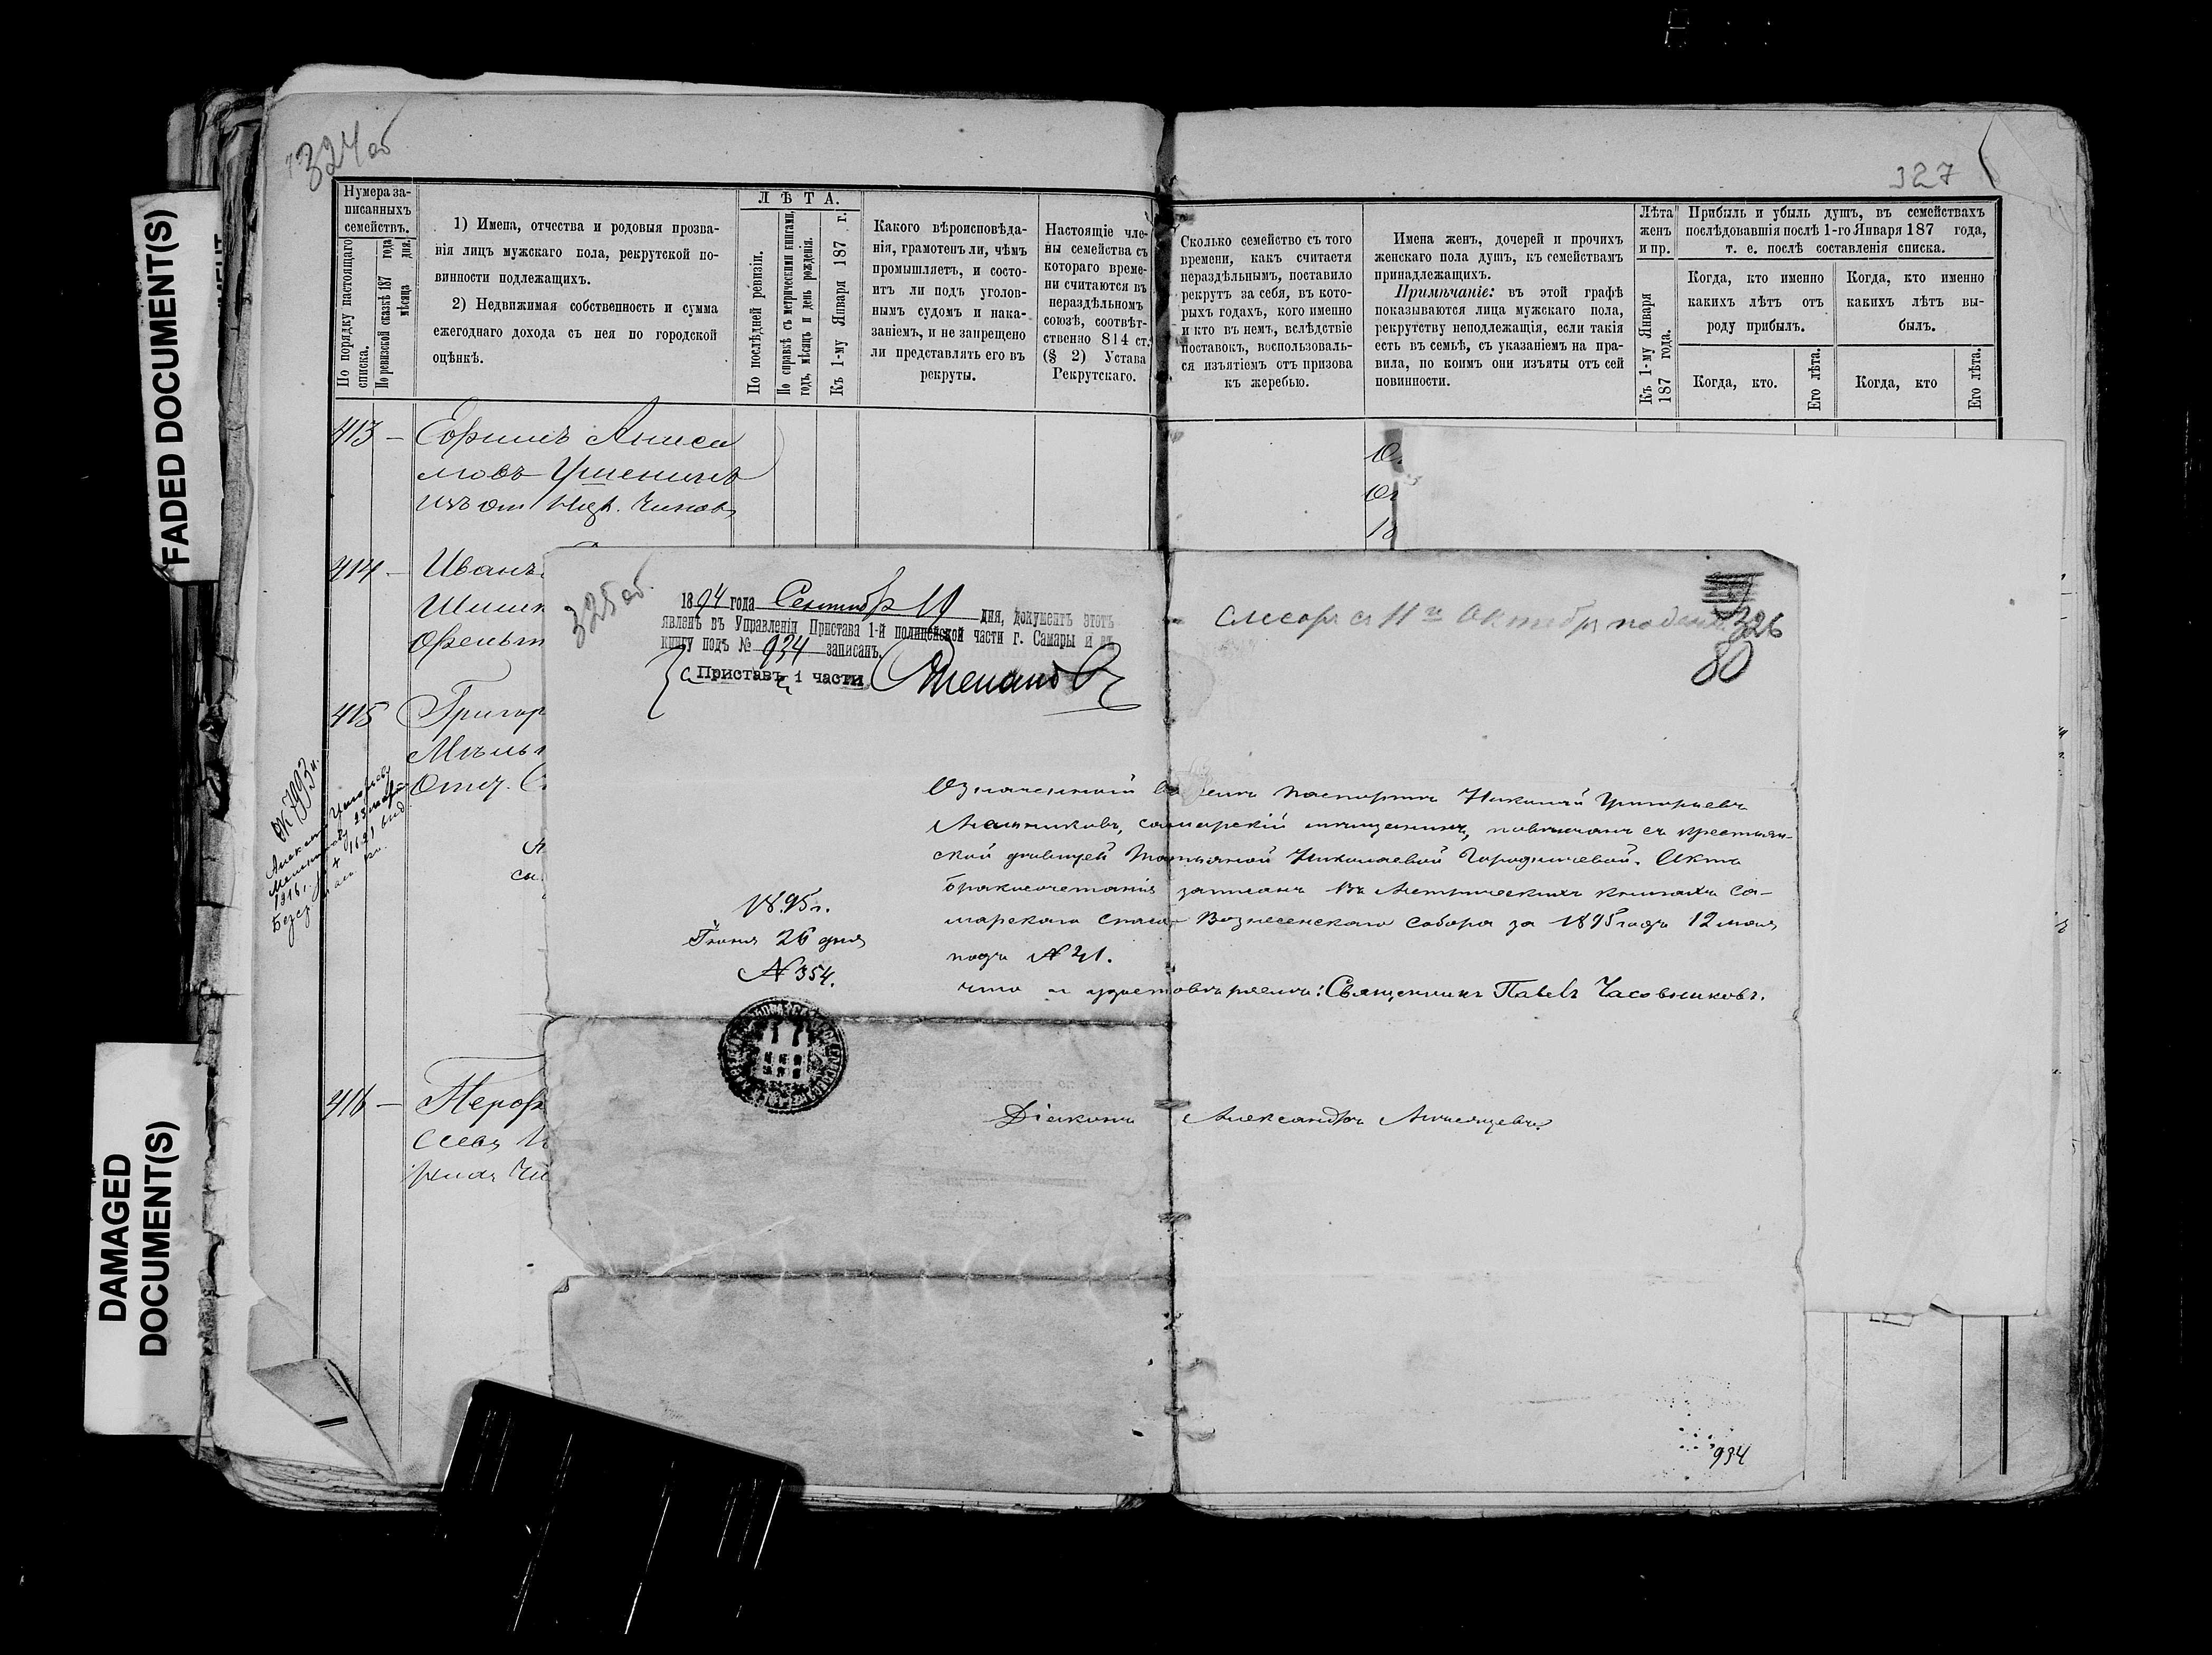 FADED DOCUMENT(S)
DAMAGED
DOCUMENT(S)
324 об
Нумера за-
писанныхъ
семействъ.
По порядку настоящаго
списка.
По ревизской сказкѣ 187 года
мѣсяца дня.
1) Имена, отчества и родовыя прозва-
нія лицъ мужскаго пола, рекрутской по-
винности подлежащихъ.
2) Недвижимая собственность и сумма
ежегоднаго дохода съ нея по городской
оцѣнкѣ.
ЛѢТА.
По послѣдней ревизіи.
По справкѣ съ метрическими книгами,
годъ, мѣсяцъ и день рожденія.
Къ 1-му Января 187 г.
Какого вѣроисповѣда-
нія, грамотенъ ли, чѣмъ
промышляетъ, и состо-
итъ ли подъ уголов-
нымъ судомъ и нака-
заніемъ, и не запрещено
ли представлять его въ
рекруты.
Настоящіе чле-
ны семейства съ
котораго време-
ни считаются въ
нераздѣльномъ
союзѣ, соотвѣт-
ственно 814 ст.
(§ 2) Устава
Рекрутскаго.
413 – Ефимъ Аниси
мовъ Ушенинъ
изъ от нижн. чиновъ
414 – Иванъ
Шишк
Фельт
415 Григор
Мѣльн
Отст. С
416 –
№ 7993
327
Сколько семейство съ того
времени, какъ считается
нераздѣльнымъ, поставило
рекрутъ за себя, въ кото-
рыхъ годахъ, кого именно
и кто въ немъ, вслѣдствіе
поставокъ, воспользовалъ-
ся изъятіемъ отъ призова
къ жеребью.
Имена женъ, дочерей и прочихъ
женскаго пола душъ, къ семействамъ
принадлежащихъ.
Примѣчаніе: въ этой графѣ
показываются лица мужскаго пола,
рекрутству неподлежащія, если такія
есть въ семьѣ, съ указаніемъ на пра-
вила, по коимъ они изъяты отъ сей
повинности.
Лѣта
женъ
и пр.
Къ 1-му Января
187 года.
Прибыль и убыль душъ, въ семействахъ
послѣдовавшія послѣ 1-го Января 187 года,
т. е. послѣ составленія списка.
Когда, кто именно
какихъ лѣтъ отъ
роду прибылъ.
Когда, кто именно
какихъ лѣтъ вы-
былъ.
Когда, кто.
Его лѣта.
Когда, кто
Его лѣта.
325 об.
1894 года Сентябр 19 дня, документъ этотъ
явленъ въ Управленіи Пристава 1-й полицейской части г. Самары и въ
книгу подъ № 934 записанъ.
Приставъ 1 части Степановъ
326
80
Означенный въ семъ паспортѣ Николай Григорьевъ
Мельниковъ, самарскій мѣщанинъ, повѣнчанъ съ крестьян-
ской дѣвицей Татьяной Николаевой Городничевой. Актъ
бракосочетанія записанъ въ Метрическихъ книгахъ Са-
марскаго Спасо-Вознесенскаго собора за 1895 годъ 12 мая
подъ № 21.
что и удостовѣряемъ: Священникъ Павелъ Часовниковъ.
1895 г.
Іюня 26 дня
№ 354.
Діаконъ Александръ
934